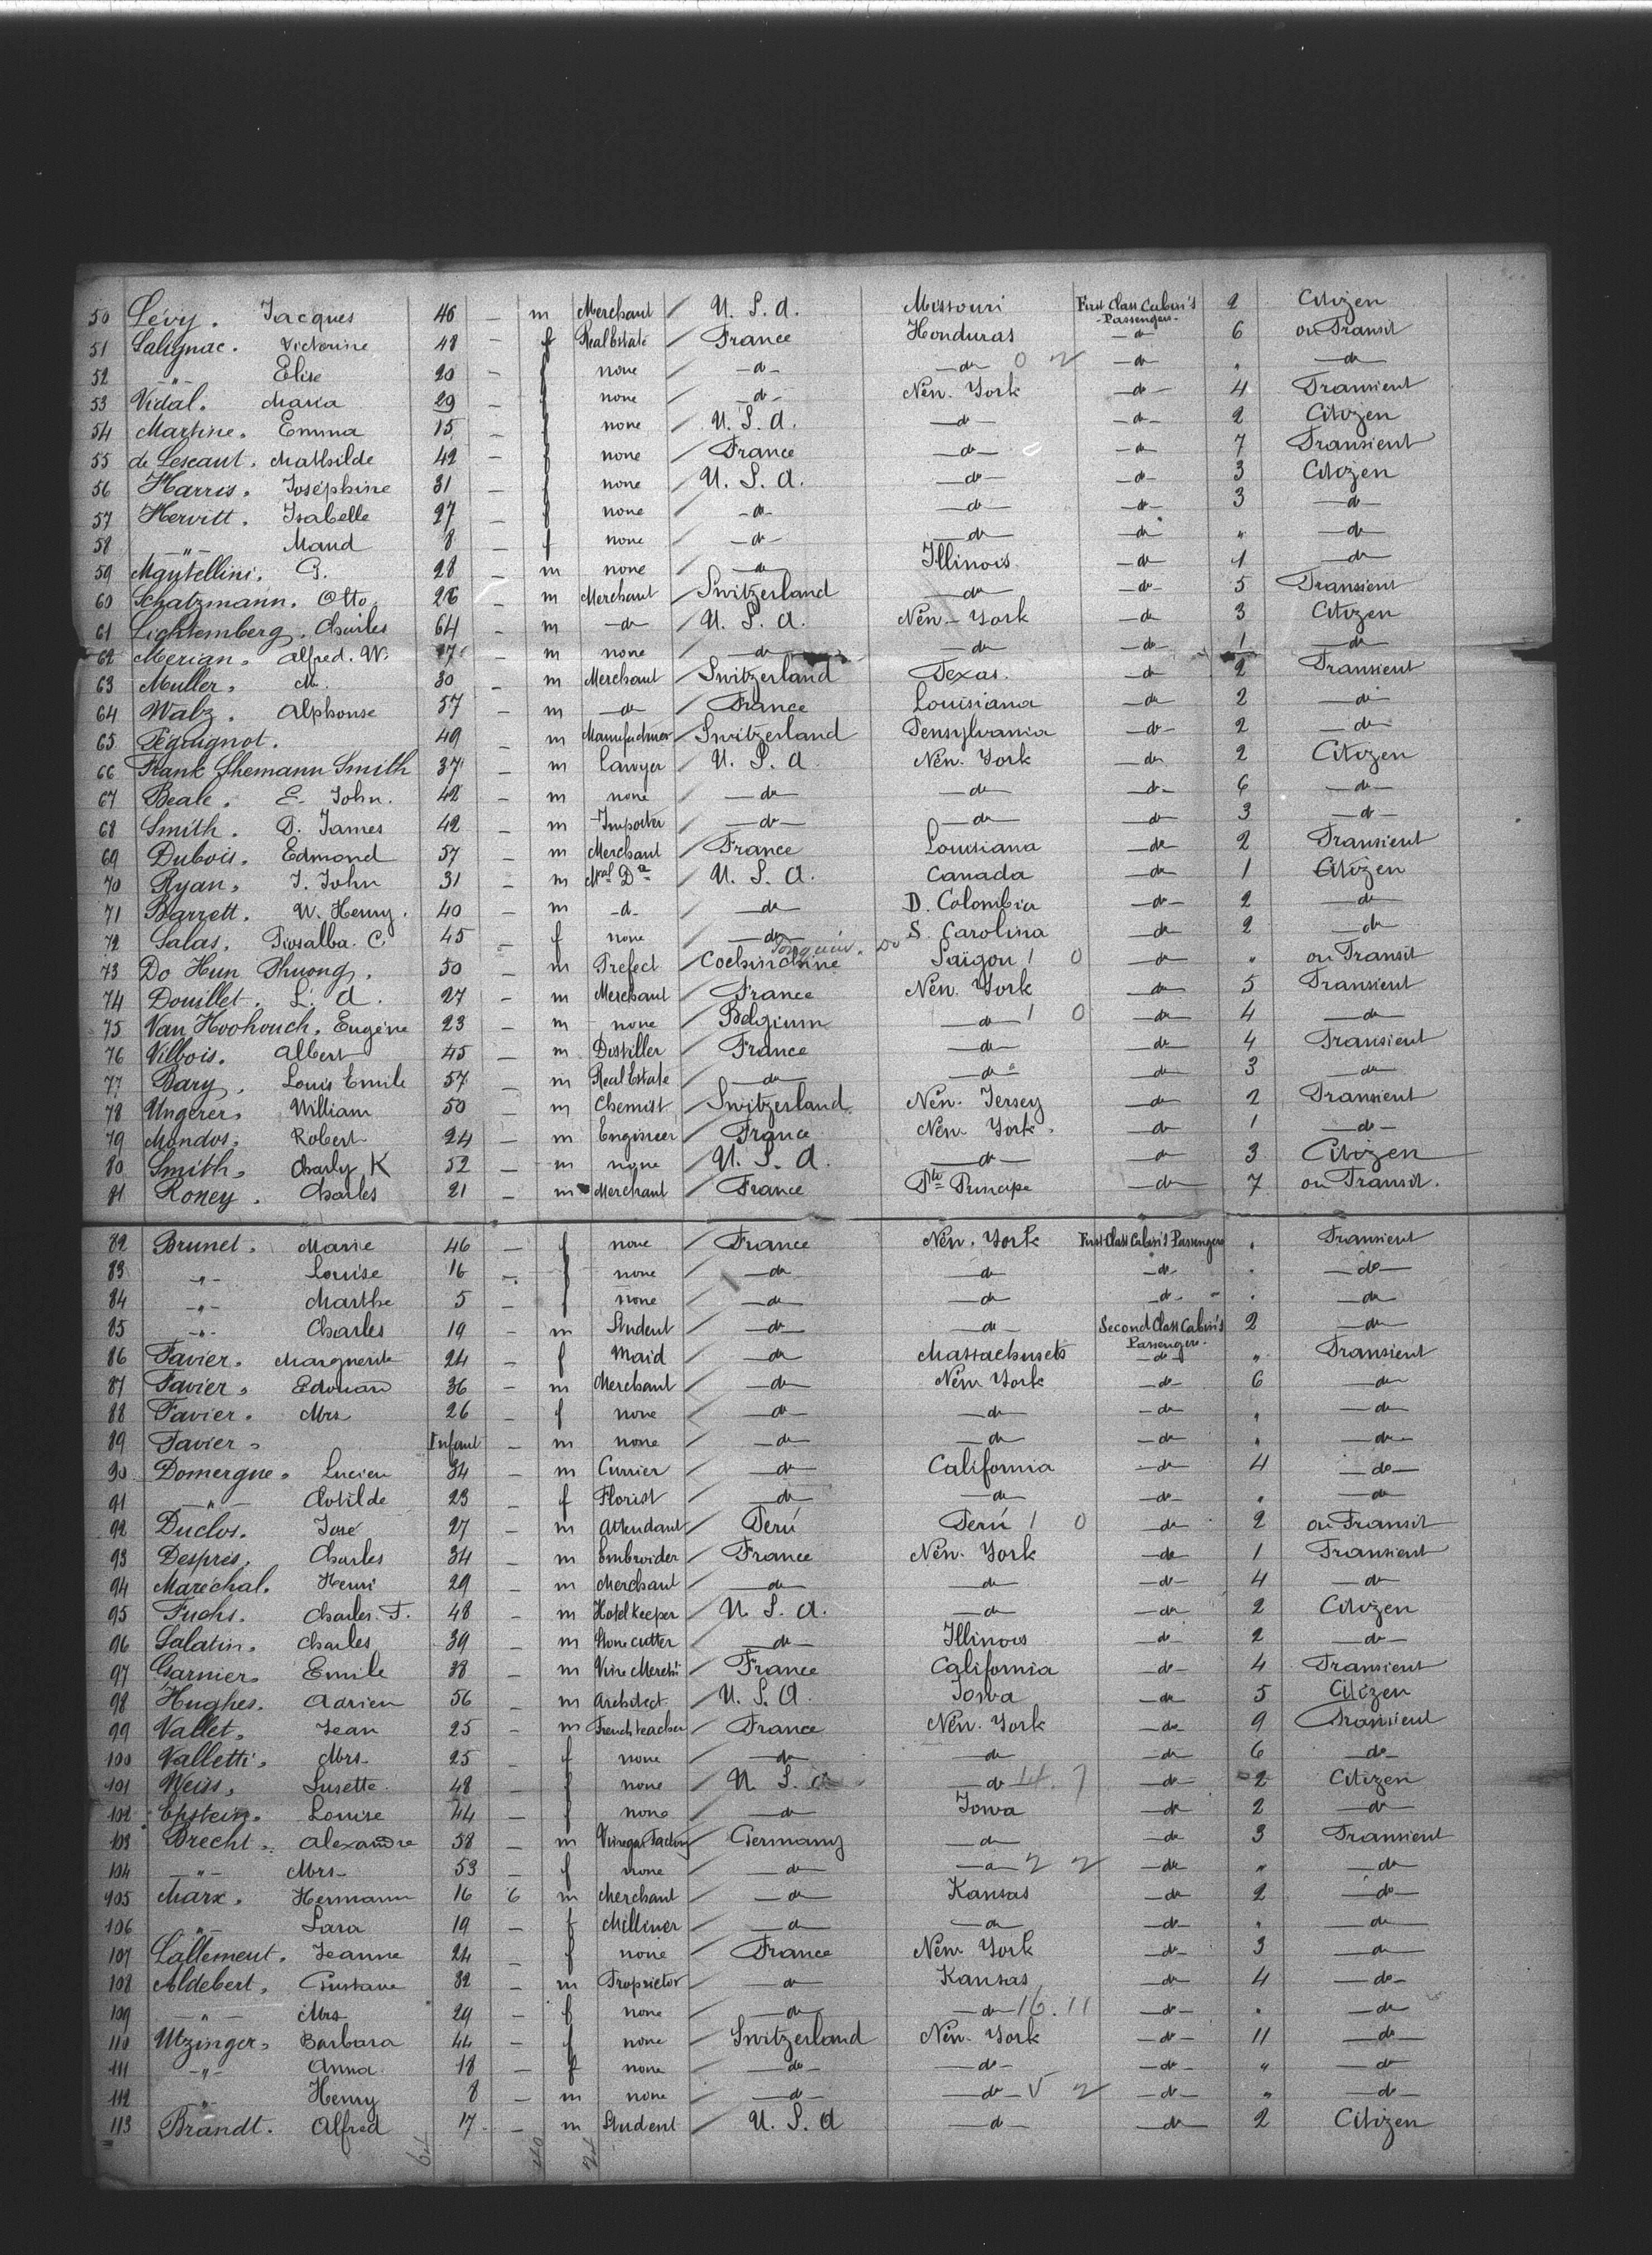 50 Lévy. Jacques 46 — m Merchant / U. S. A. Missouri First Class Cabin's Passengers 2 Citizen
51 Salignac. Victorine 48 — f Real Estate / France Honduras — do — 6 on Transit
52 —"— Elise 20 — f none / — do — — do — 0 2 — do — " — do —
53 Vidal. Maria 29 — f none / — do — New. York — do — 4 Transient
54 Martine. Emma 15 — f none / U. S. A. — do — — do — 2 Citizen
55 de Lescaut. Mathilde 42 — f none / France — do — — do — 7 Transient
56 Harris. Joséphine 31 — f none / U. S. A. — do — — do — 3 Citizen
57 Hervitt. Isabelle 27 — f none / — do — — do — — do — 3 — do —
58 —"— Maud 8 — f none / — do — — do — — do — " — do —
59 Maytellini. G. 28 — m none / — do — Illinois — do — 1 — do —
60 Schatzmann. Otto 26 — m Merchant / Switzerland — do — — do — 5 Transient
61 Lichtemberg. Charles 64 — m — do — / U. S. A. New-York — do — 3 Citizen
62 Merian. Alfred. W. m none / — do — — do — — do — 1 — do —
63 Muller. M. 30 — m Merchant / Switzerland Texas. — do — 2 Transient
64 Walz. Alphonse 57 — m — do — / France Louisiana — do — 2 — do —
65 Péquignot. 49 — m Manufacturer / Switzerland Pensylvania — do — 2 — do —
66 Frank Shemann Smith 37 — m Lawyer / U. S. A New. York — do — 2 Citizen
67 Beale. E. John. 42 — m none / — do — — do — — do — 6 — do —
68 Smith. D. James 42 — m Importer / — do — — do — — do — 3 — do —
69 Dubois. Edmond 57 — m Merchant / France Louisiana — do — 2 Transient
70 Ryan. J. John 31 — m / U. S. A. Canada — do — 1 Citizen
71 Barrett. W. Henry. 40 — m — d — / — do — D. Colombia — do — 2 — do —
72 Salas. C. 45 — f none / — do — S. Carolina — do — 2 — do —
73 Do Hun Phuong. 50 — m Prefect / Cochinchine Tonquin. Do Saigon 1 0 — do — " on Transit
74 Douillet. L. A. 27 — m Merchant / France New. York — do — 5 Transient
75 Van Hoohouch. Eugène 23 — m none / Belgium — do — 1 0 — do — 4 — do —
76 Vilbois. Albert 45 — m Distiller / France — do — — do — 4 Transient
77 Bary. Louis Emile 57 — m Real Estate / — do — — do — — do — 3 — do —
78 Ungerer. William 50 — m Chemist / Switzerland New. Jersey — do — 2 Transient
79 Mondos. Robert 24 — m Engineer / France New York. — do — 1 — do —
80 Smith. Charly K 52 — m none / U. S. A. — do — — do — 3 Citizen
81 Roney. Charles 21 — m Merchant / France Pto Principe — do — 7 on Transit.
82 Brunel. Marie 46 — f none / France New. York First Class Cabin's Passengers " Transient
83 —"— Louise 16 — f none / — do — — do — — do — " — do —
84 —"— Marthe 5 — f none / — do — — do — — do — " — do —
85 —"— Charles 19 — m Student / — do — — do — Second Class Cabin's Passengers. 2 — do —
86 Favier. Marguerite 24 — f Maid / — do — Massachusets — do — " Transient
87 Favier. Edouard 36 — m Merchant / — do — New York — do — 6 — do —
88 Favier. Mrs 26 — f none / — do — — do — — do — " — do —
89 Favier. Infant — m none / — do — — do — — do — " — do —
90 Domergue. Lucien 34 — m Currier / — do — California — do — 4 — do —
91 —"— Clotilde 23 — f Florist / — do — — do — — do — " — do —
92 Duclos. José 27 — m Attendant / Perú Perú 1 0 — do — 2 on Transit
93 Desprès. Charles 34 — m Embroider / France New. York — do — 1 Transient
94 Maréchal. Henri 29 — m Merchant / — do — — do — — do — 4 — do —
95 Fuchs. Charles. F. 48 — m Hotel Keeper / U. S. A. — do — — do — 2 Citizen
96 Salatin. Charles 39 — m Stone cutter / — do — Illinois — do — 2 — do —
97 Garnier. Emile 38 — m Vine Merch't / France California — do — 4 Transient
98 Hughes. Adrien 56 — m Architect / U. S. A. Iowa — do — 5 Citizen
99 Vallet. Jean 25 — m French teacher / France New. York — do — 9 Transient
100 Valletti. Mrs 25 — f none / — do — — do — — do — 6 — do —
101 Weiss. Lusette 48 — f none / U. S. A — do — 14. 7 — do — 2 Citizen
102 Epstein. Louise 44 — f none / — do — Iowa — do — 2 — do —
103 Brecht. Alexandre 58 — m Vinegar Factory / Germany — do — — do — 3 Transient
104 —"— Mrs 53 — f none / — do — — do — 2 2 — do — " — do —
105 Marx. Hermann 16 6 m Merchant / — do — Kansas — do — 2 — do —
106 —"— Sara 19 — f Milliner / — do — — do — — do — " — do —
107 Lallement. Jeanne 24 — f none / France New York — do — 3 — do —
108 Aldebert. Gustave 32 — m Proprietor / — do — Kansas — do — 4 — do —
109 —"— Mrs 29 — f none / — do — — do — 16. 11 — do — " — do —
110 Utzinger. Barbara 44 — f none / Switzerland New. York — do — 11 — do —
111 —"— Anna 18 — f none / — do — — do — — do — " — do —
112 —"— Henry 8 — m none / — do — — do — 5 2 — do — " — do —
113 Brandt. Alfred 17 — m Student / U. S. A — do — — do — 2 Citizen